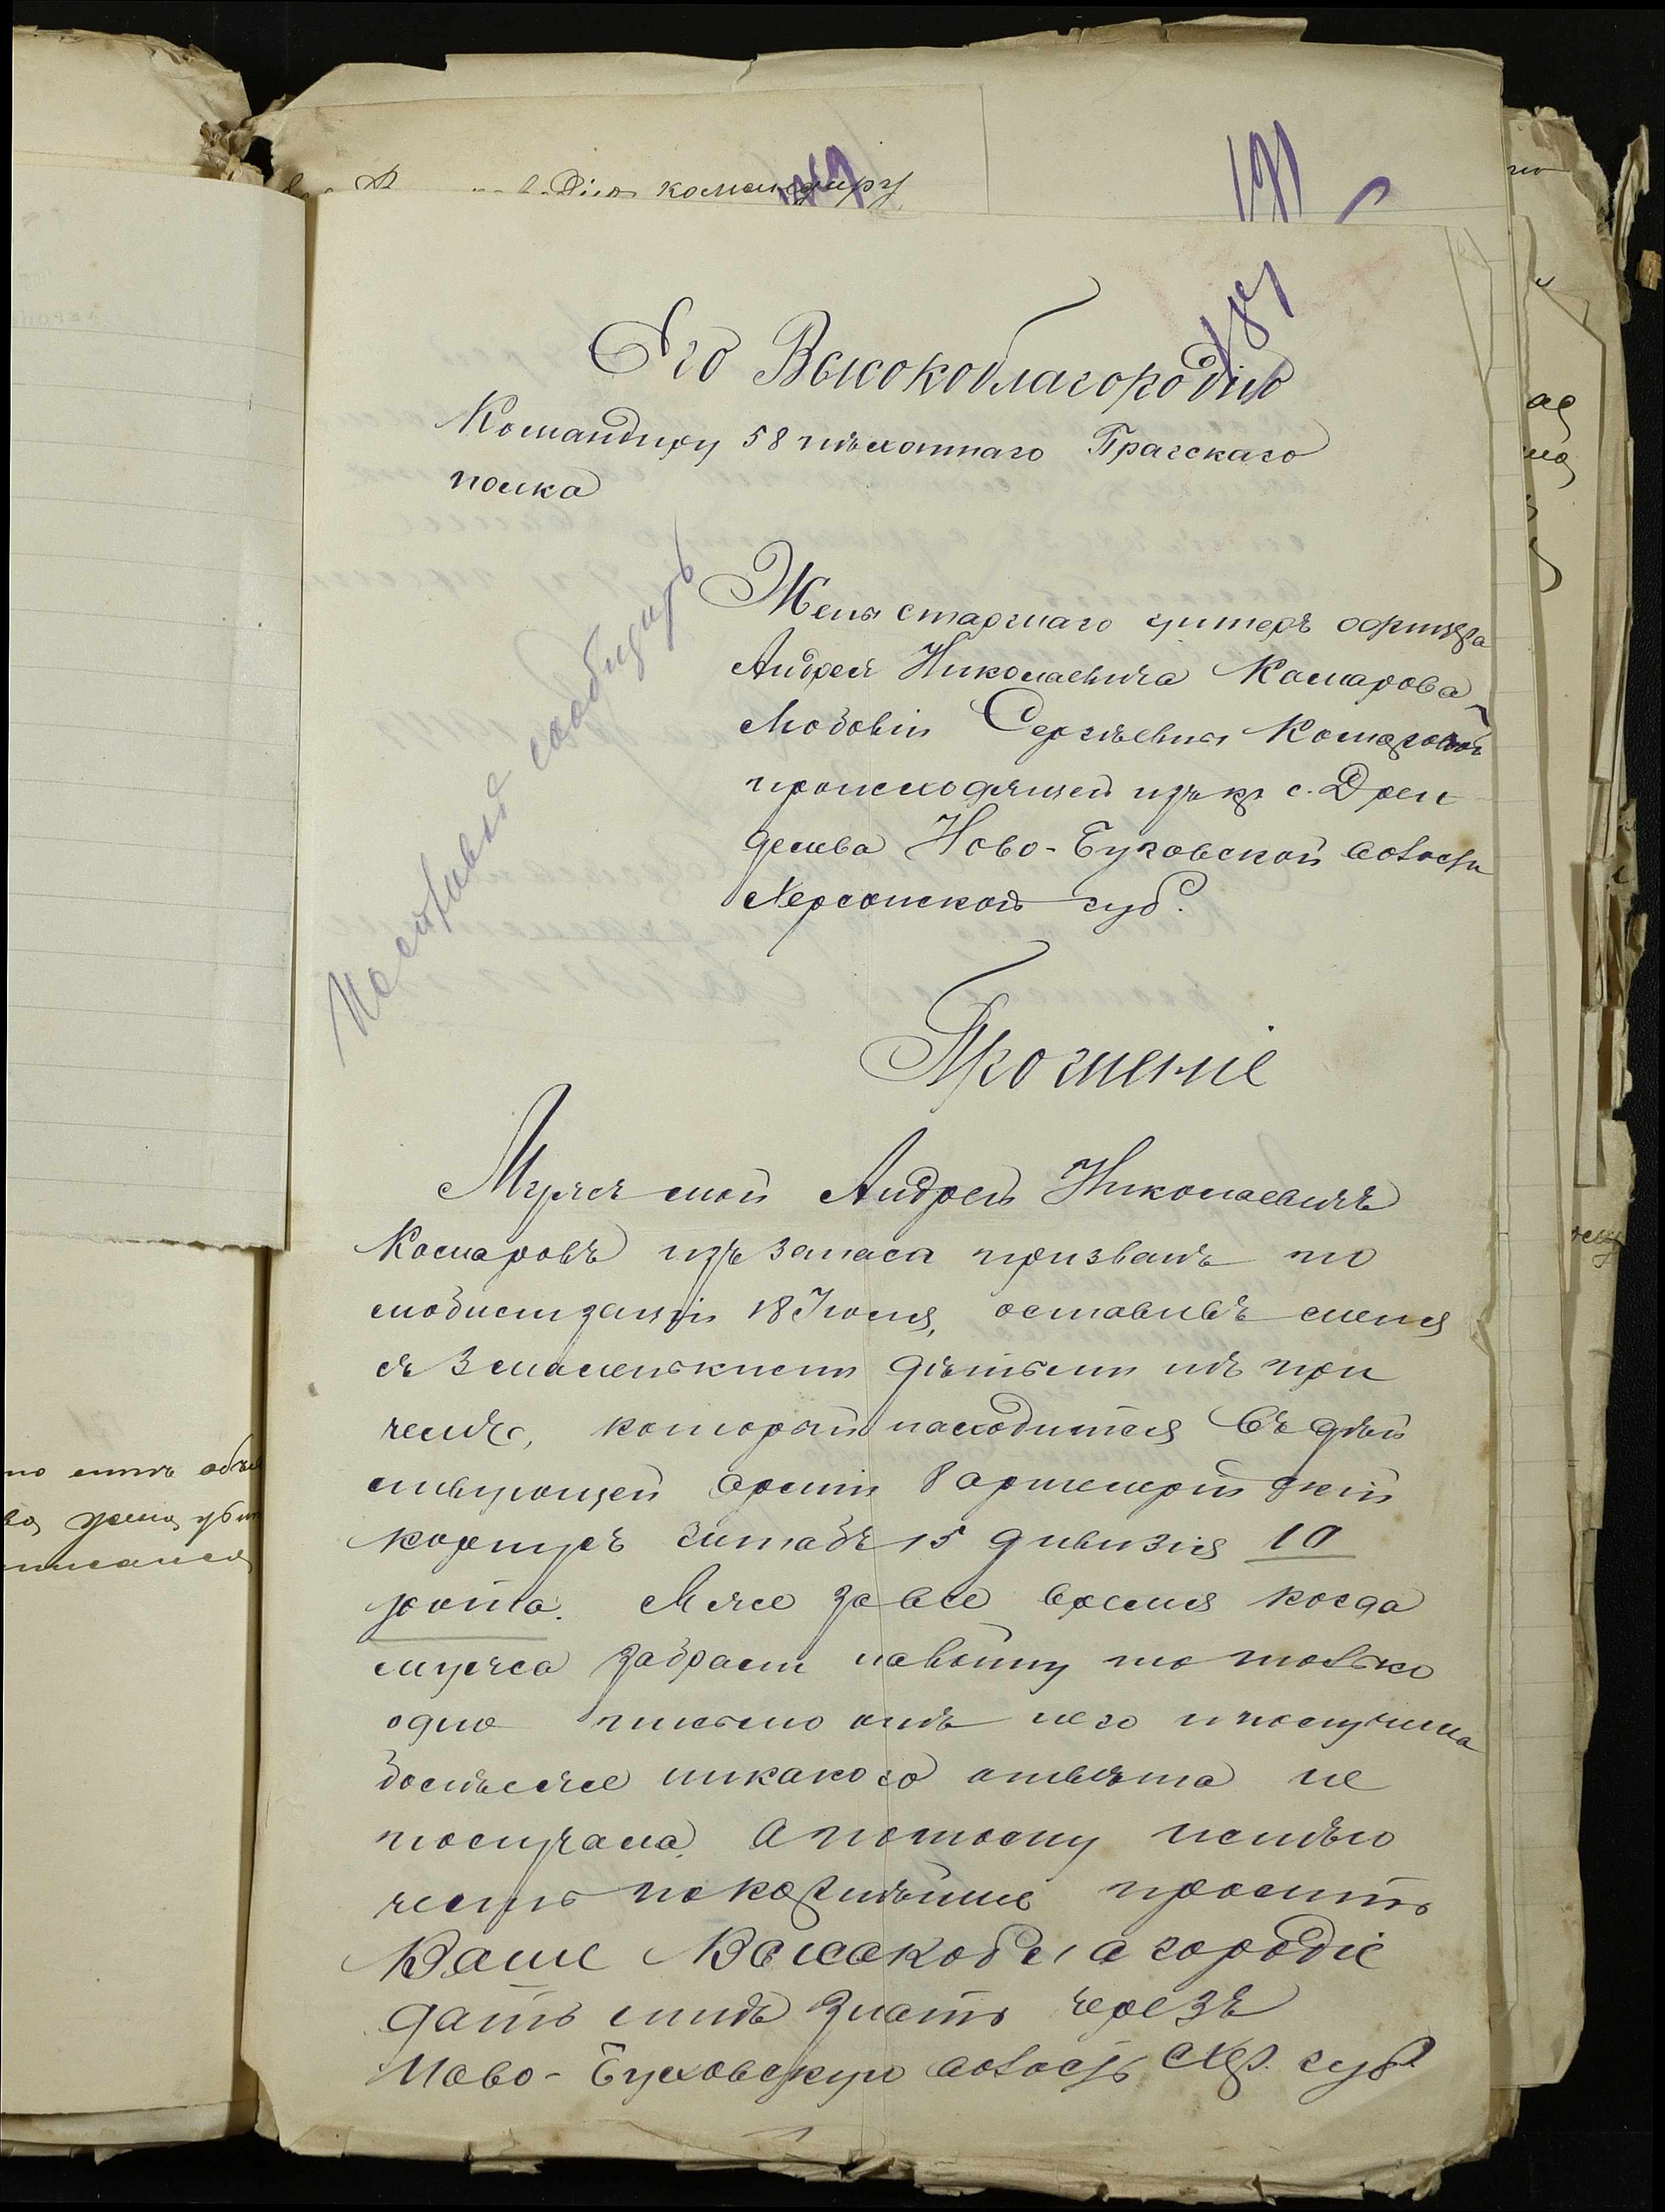 командиру
191
187
Его Высокоблагородію
Командиру 58 пѣхотнаго Прагскаго
полка
Жены старшаго унтеръ офицера
Андрея Николаевича Камарова
Любовіи Сергѣевны Комаровой
происходящей изъ кр с. Дрен
делева Ново-Буховской волости
Херсонской губ.
сообщить
Прошеніе
Мужъ мой Андрей Николаевичъ
Комаровъ изъ запаса призванъ по
мобилизаціи 18 Іюля, оставивъ меня
съ 3 маленькими дѣтьми не при
чемъ, который находится въ дѣй
ствующей арміи 8 артилерійскій
корпусъ штабъ 15 дивизія 10
рота. Мнѣ за все время когда
мужа забрали на войну то только
одно письмо отъ него и получила
болѣе же никакого отвѣта не
получала. А потому имѣю
честь покорнѣйше просить
Ваше Высокоблагородіе
дать мнѣ знать черезъ
Ново-Буховскую волость Хер. губ.